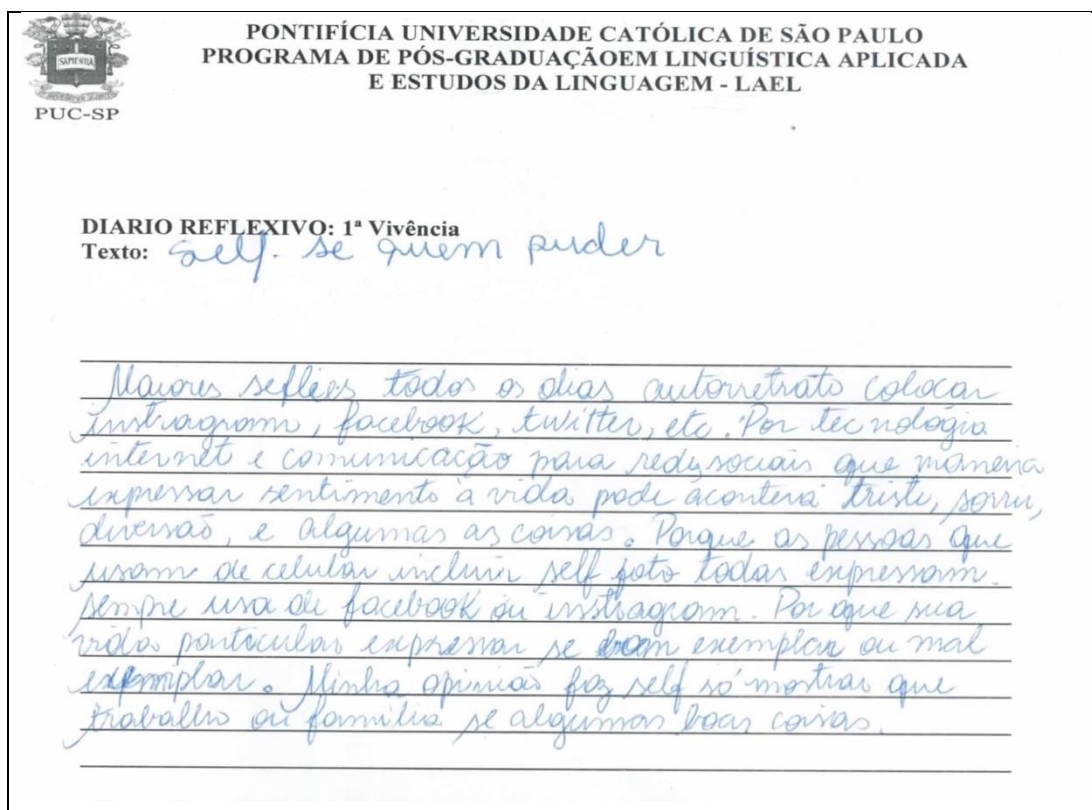 PONTIFÍCIA UNIVERSIDADE CATÓLICA DE SÃO PAULO
PROGRAMA DE PÓS-GRADUAÇÃOEM LINGUÍSTICA APLICADA
E ESTUDOS DA LINGUAGEM - LAEL
SAPIENTIA
PUC-SP
DIARIO REFLEXIVO: 1ª Vivência
Texto: Self. se quem puder
Maiores sefliès todos os dias autorretrato colocar
instragram, facebook, twitter, etc. Por tecnologia
internet e comunicação para redysociais que maneira
expressar sentimento a vida pode acontecá triste, sorrir,
diversão, e algumas as coisas. Porque as pessoas que
usam de celular incluir self foto todas expressam.
sempre usa de facebook ou instragram. Por que sua
vida particular expressar se bom exemplar ou mal
exemplar. Minha opinião faz self só mostrar que
trabalho ou família se algumas boas coisas.